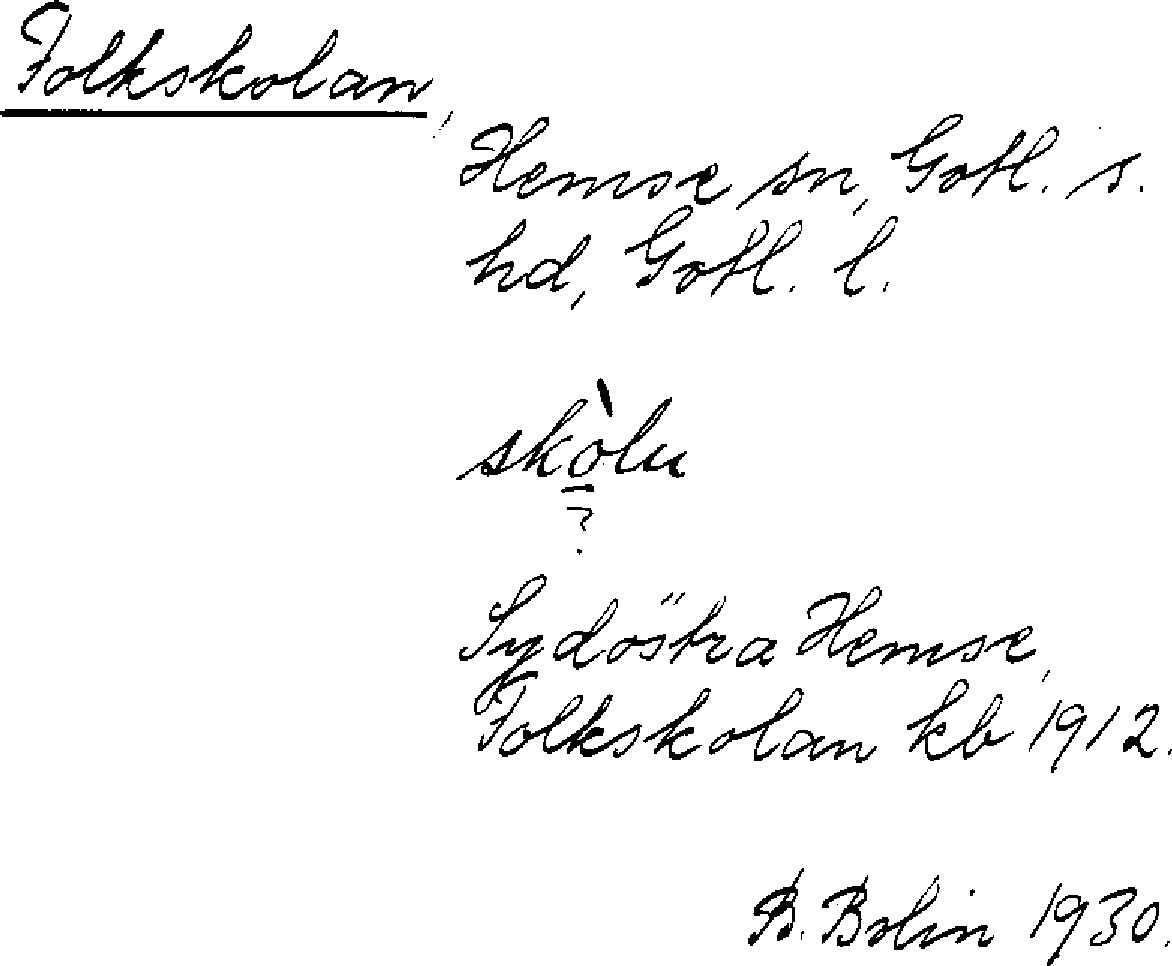 Folkskolan,
Hemse sn, Gotl. s.
hd, Gotl. l.
skòlu
?
Sydöstra Hemse,
Folkskolan kb 1912.
B. Bolin 1930.